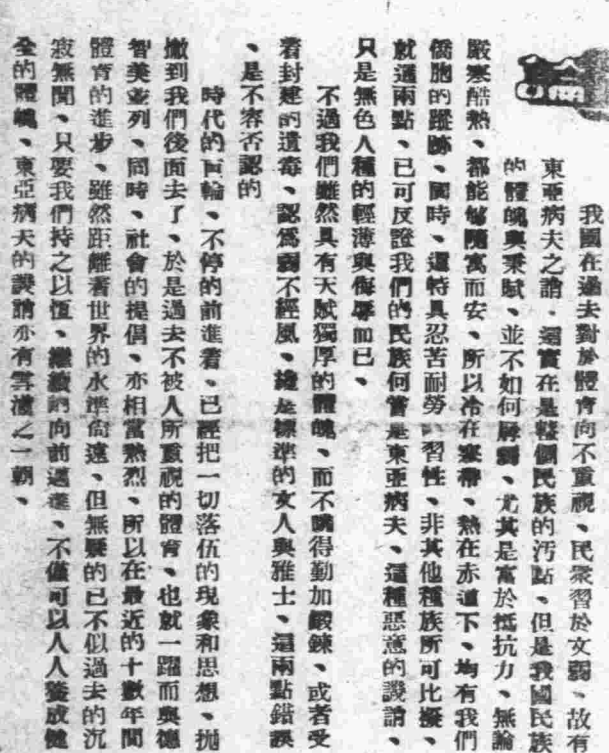 我國在過去對於體育向不重視、民衆習於文弱、故有
東亞病夫之誚．這實在是整個民族的汚點、但是我國民族
的體魄與秉賦、並不如何孱弱、尤其是富於抵抗力、無論
嚴寒酷熱、都能够隨寓而安、所以冷在寒帶、熱在赤道下、均有我們
僑胞的蹤跡、同時、還特具忍苦耐勞 習性、非其他種族所可比擬、
就這兩點、已可反證我們的民族何嘗是東亞病夫、這種惡意的譏誚、
只是無色人種的輕薄與侮辱而已、
不過我們雖然具有天賦獨厚的體魄、而不曉得勤加鍛鍊、或者受
着封建的遺毒、認爲弱不經風、纔是標準的女人與雅士、這兩點錯誤
、是不容否認的
時代的巨輪、不停的前進着、已經把一切落伍的現象和思想、抛
撇到我們後面去了、於是過去不被人所重視的體育、也就一躍而與德
智美並列、同時、社會的提倡、亦相當熱烈、所以在最近的十數年間
體育的進步、雖然距離着世界的水準尙遠、但無疑的已不似過去的沉
寂無聞、只要我們持之以恆、繼續的向前邁進、不僅可以人人養成健
全的體魄、東亞病夫的譏誚亦有雪濯之一朝、